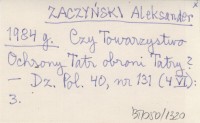 ZACZYŃSKI Aleksander
1984 g. Czy Towarzystwo
Ochrony Tatr obroni Tatry?
— Dz. Pol. 40, nr 131 (4 VI):
3.